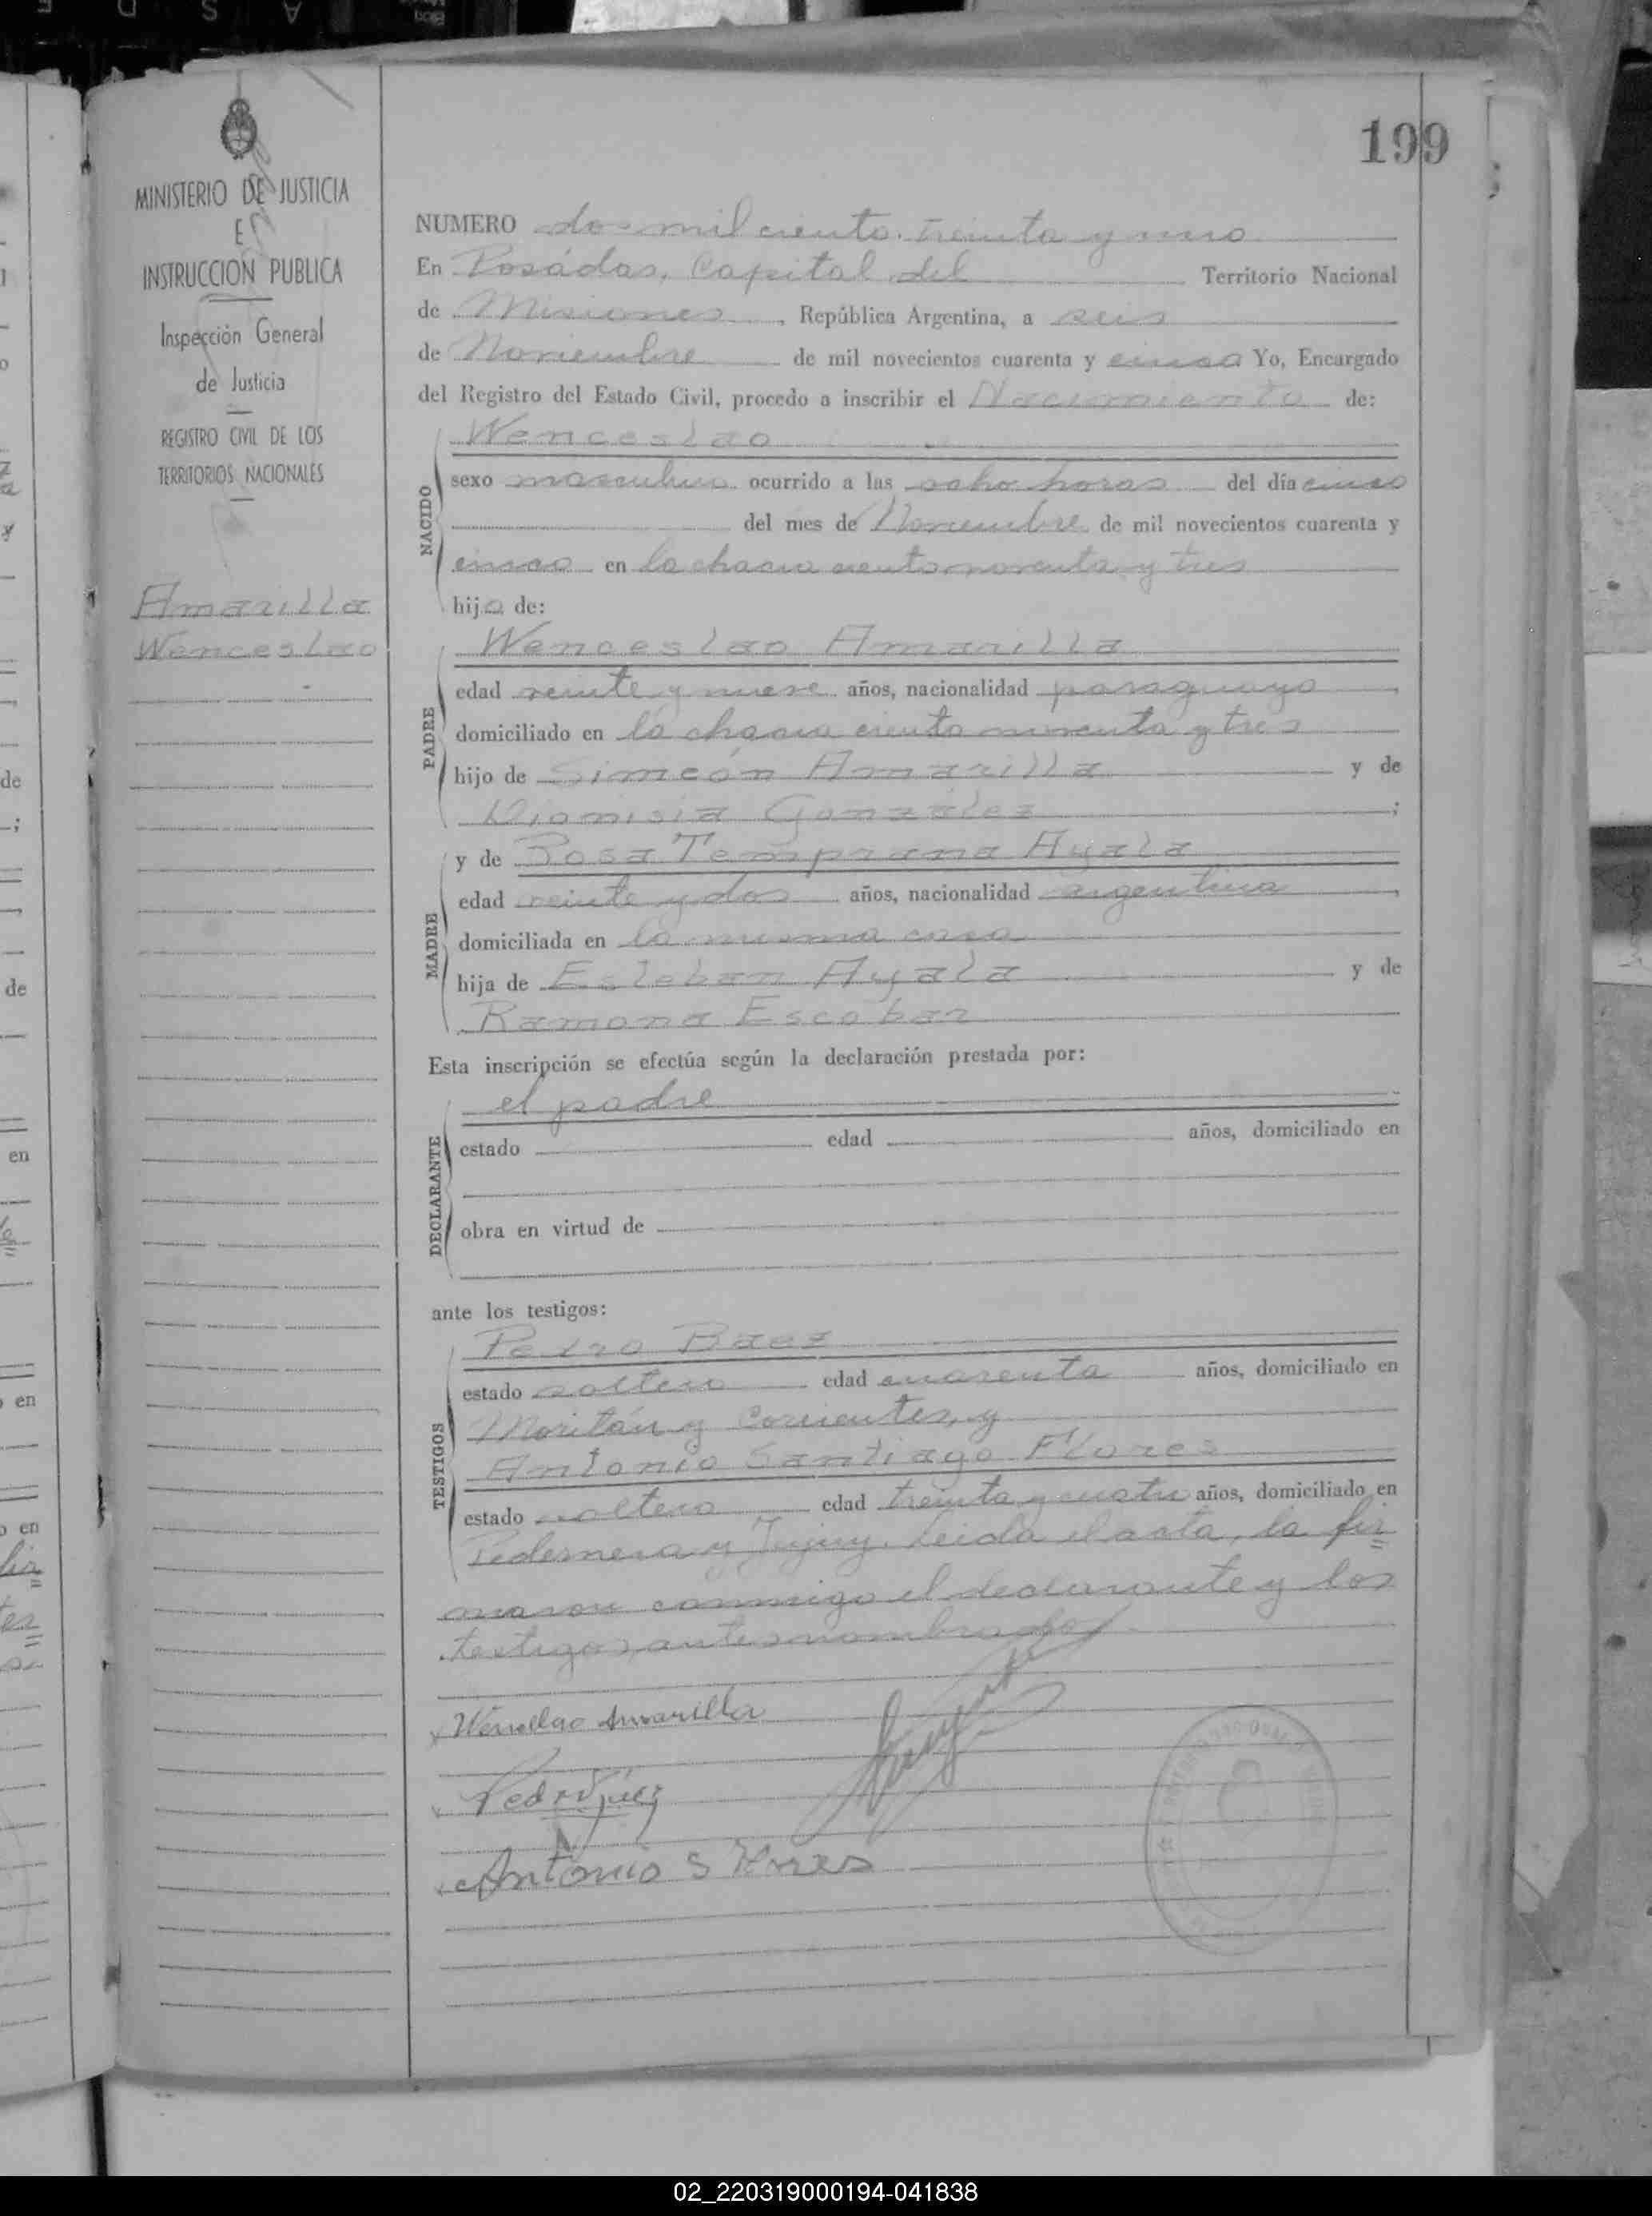 199
MINISTERIO DE JUSTICIA
E
INSTRUCCION PUBLICA
Inspección General
de Justicia
REGISTRO CIVIL DE LOS
TERRITORIOS NACIONALES
Amarilla
Wenceslao
NUMERO dos mil ciento treinta y uno
En Posádas, Capital del Territorio Nacional
de Misiones, República Argentina, a seis
de Noviembre de mil novecientos cuarenta y cinco Yo, Encargado
del Registro del Estado Civil, procedo a inscribir el Nacimiento de:
NACIDO
Wenceslao
sexo masculino ocurrido a las ocho horas del día cinco
del mes de Noviembre de mil novecientos cuarenta y
cinco en la chacra ciento noventa y tres
hijo de:
PADRE
Wenceslao Amarilla
edad veinte y nueve años, nacionalidad paraguayo,
domiciliado en la chacra ciento noventa y tres
hijo de Simeón Amarilla y de
Dionisia González;
MADRE
y de Rosa Temprana Ayala
edad veinte y dos años, nacionalidad argentina,
domiciliada en la misma casa
hija de Esteban Ayala y de
Ramona Escobar
Esta inscripción se efectúa según la declaración prestada por:
DECLARANTE
el padre
estado edad años, domiciliado en
obra en virtud de
ante los testigos:
TESTIGOS
Pedro Baez
estado soltero edad cuarenta años, domiciliado en
Moritán y Corrientes, y
Antonio Santiago Flores
estado soltero edad treinta y cuatro años, domiciliado en
Pedernera y Jujuy. Leida el acta, la fir=
maron conmigo el declarante y los
testigos antes nombrados
Wenceslao Amarilla
Antonio S Flores
02_220319000194-041838